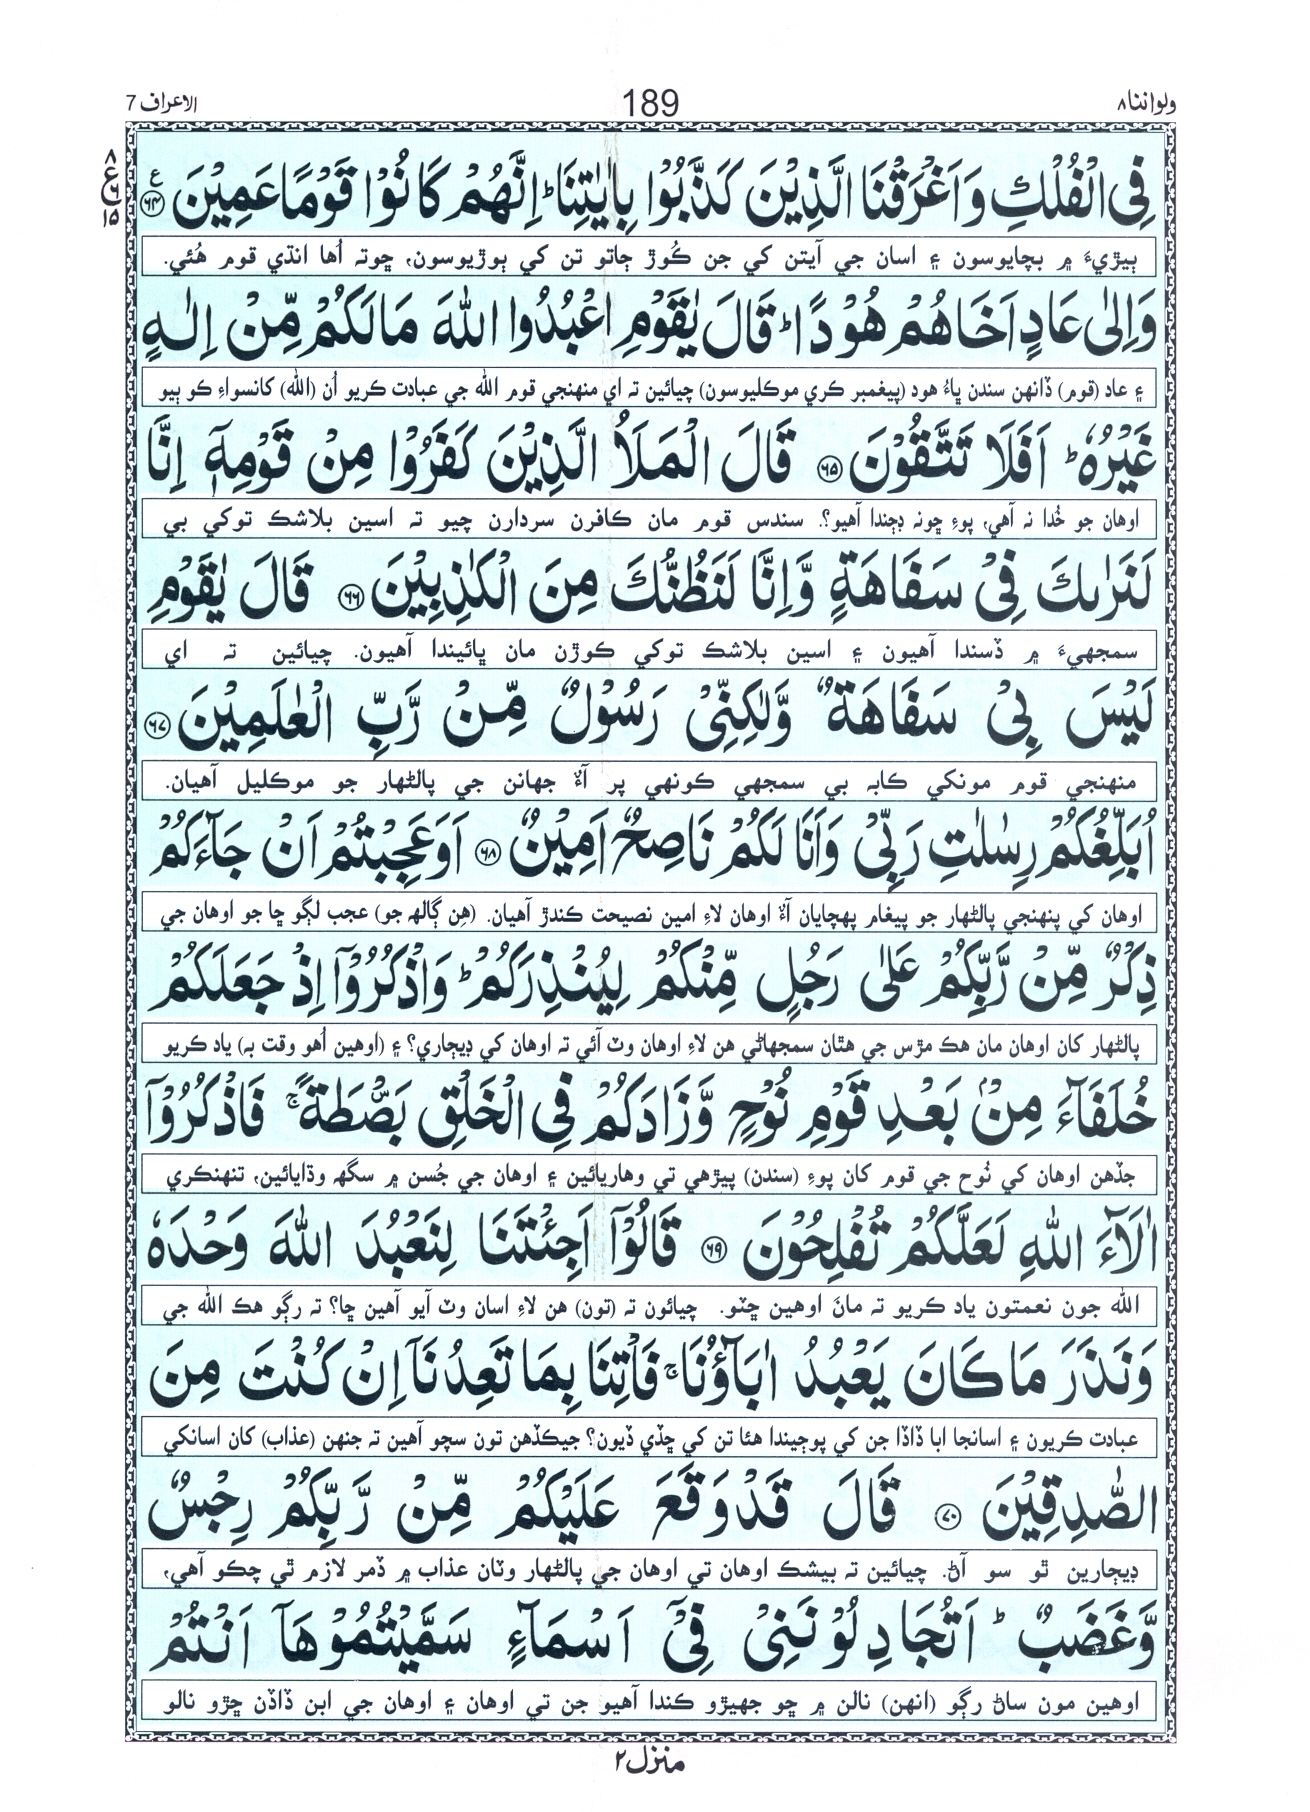 ولواننا ٨
189
الاعراف 7
٨
ع
٦
١٥
فِی الْفُلْكِ وَاَغْرَقْنَا الَّذِیْنَ كَذَّبُوْا بِاٰیٰتِنَا ؕ اِنَّهُمْ كَانُوْا قَوْمًا عَمِیْنَ ۝۶۴ ع
ٻيڙيءَ ۾ بچايوسون ۽ اسان جي آيتن کي جن ڪُوڙ ڄاتو تن کي ٻوڙيوسون، ڇوتہ اُها انڌي قوم هُئي.
وَاِلٰی عَادٍ اَخَاهُمْ هُوْدًا ؕ قَالَ یٰقَوْمِ اعْبُدُوا اللّٰهَ مَا لَكُمْ مِّنْ اِلٰهٍ
۽ عاد (قوم) ڏانهن سندن ڀاءُ هود (پيغمبر ڪري موڪليوسون) چيائين تہ اي منهنجي قوم الله جي عبادت ڪريو اُن (الله) کانسواءِ ڪو ٻيو
غَیْرُهٗ ؕ اَفَلَا تَتَّقُوْنَ ۝۶۵ قَالَ الْمَلَاُ الَّذِیْنَ كَفَرُوْا مِنْ قَوْمِهٖۤ اِنَّا
اوهان جو خُدا نہ آهي، پوءِ ڇونہ ڊڄندا آهيو؟. سندس قوم مان ڪافرن سردارن چيو تہ اسين بلاشڪ توکي بي
لَنَرٰىكَ فِیْ سَفَاهَةٍ وَّاِنَّا لَنَظُنُّكَ مِنَ الْكٰذِبِیْنَ ۝۶۶ قَالَ یٰقَوْمِ
سمجهيءَ ۾ ڏسندا آهيون ۽ اسين بلاشڪ توکي ڪوڙن مان ڀائيندا آهيون. چيائين تہ اي
لَیْسَ بِیْ سَفَاهَةٌ وَّلٰكِنِّیْ رَسُوْلٌ مِّنْ رَّبِّ الْعٰلَمِیْنَ ۝۶۷
منهنجي قوم مونکي ڪابہ بي سمجهي ڪونهي پر آءٌ جهانن جي پالڻهار جو موڪليل آهيان.
اُبَلِّغُكُمْ رِسٰلٰتِ رَبِّیْ وَاَنَا لَكُمْ نَاصِحٌ اَمِیْنٌ ۝۶۸ اَوَعَجِبْتُمْ اَنْ جَآءَكُمْ
اوهان کي پنهنجي پالڻهار جو پيغام پهچايان آءٌ اوهان لاءِ امين نصيحت ڪندڙ آهيان. (هِن ڳالهہ جو) عجب لڳو ڇا جو اوهان جي
ذِكْرٌ مِّنْ رَّبِّكُمْ عَلٰی رَجُلٍ مِّنْكُمْ لِیُنْذِرَكُمْ ؕ وَاذْكُرُوْۤا اِذْ جَعَلَكُمْ
پالڻهار کان اوهان مان هڪ مڙس جي هٿان سمجهاڻي هن لاءِ اوهان وٽ آئي تہ اوهان کي ڊيڄاري؟ ۽ (اوهين اُهو وقت بہ) ياد ڪريو
خُلَفَآءَ مِنْۢ بَعْدِ قَوْمِ نُوْحٍ وَّزَادَكُمْ فِی الْخَلْقِ بَصْۜطَةً ۚ فَاذْكُرُوْۤا
جڏهن اوهان کي نُوح جي قوم کان پوءِ (سندن) پيڙهي تي وهاريائين ۽ اوهان جي جُسن ۾ سگهہ وڌايائين، تنهنڪري
اٰلَآءَ اللّٰهِ لَعَلَّكُمْ تُفْلِحُوْنَ ۝۶۹ قَالُوْۤا اَجِئْتَنَا لِنَعْبُدَ اللّٰهَ وَحْدَهٗ
الله جون نعمتون ياد ڪريو تہ مان اوهين ڇٽو. چيائون تہ (تون) هن لاءِ اسان وٽ آيو آهين ڇا؟ تہ رڳو هڪ الله جي
وَنَذَرَ مَا كَانَ یَعْبُدُ اٰبَآؤُنَا ۚ فَاْتِنَا بِمَا تَعِدُنَاۤ اِنْ كُنْتَ مِنَ
عبادت ڪريون ۽ اسانجا ابا ڏاڏا جن کي پوڄيندا هئا تن کي ڇڏي ڏيون؟ جيڪڏهن تون سچو آهين تہ جنهن (عذاب) کان اسانکي
الصّٰدِقِیْنَ ۝۷۰ قَالَ قَدْ وَقَعَ عَلَیْكُمْ مِّنْ رَّبِّكُمْ رِجْسٌ
ڊيڄارين ٿو سو آڻ. چيائين تہ بيشڪ اوهان تي اوهان جي پالڻهار وٽان عذاب ۾ ڏمر لازم ٿي چڪو آهي،
وَّغَضَبٌ ؕ اَتُجَادِلُوْنَنِیْ فِیْۤ اَسْمَآءٍ سَمَّیْتُمُوْهَاۤ اَنْتُمْ
اوهين مون ساڻ رڳو (انهن) نالن ۾ ڇو جهيڙو ڪندا آهيو جن تي اوهان ۽ اوهان جي ابن ڏاڏن ڇڙو نالو
منزل ٢